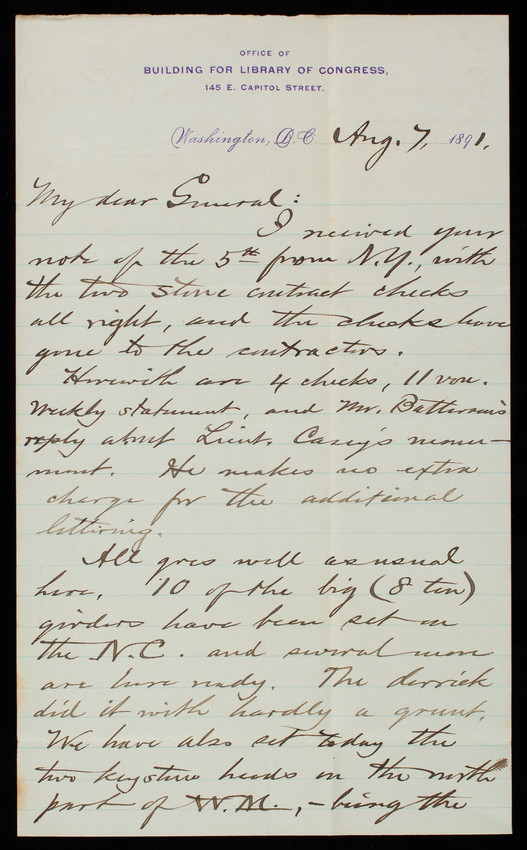 OFFICE OF
BUILDING FOR LIBRARY OF CONGRESS,
145 E. CAPITOL STREET.
Washington, D.C. Aug. 7, 1891.
My dear General:
I received your
note of the 5th from N.Y., with
the two stone contract checks
all right, and the checks have
gone to the contractors.
Herewith are 4 checks, 11 vou.
weekly statement, and Mr. Batterson's
reply about Lieut. Casey's monu-
ment. He makes no extra
charge for the additional
lettering.
All goes well as usual
here. 10 of the big (8 ton)
girders have been set on
the N.C. and several more
are here ready. The derrick
did it with hardly a grunt.
We have also set today the
two keystone heads on the north
part of W.M., - being the